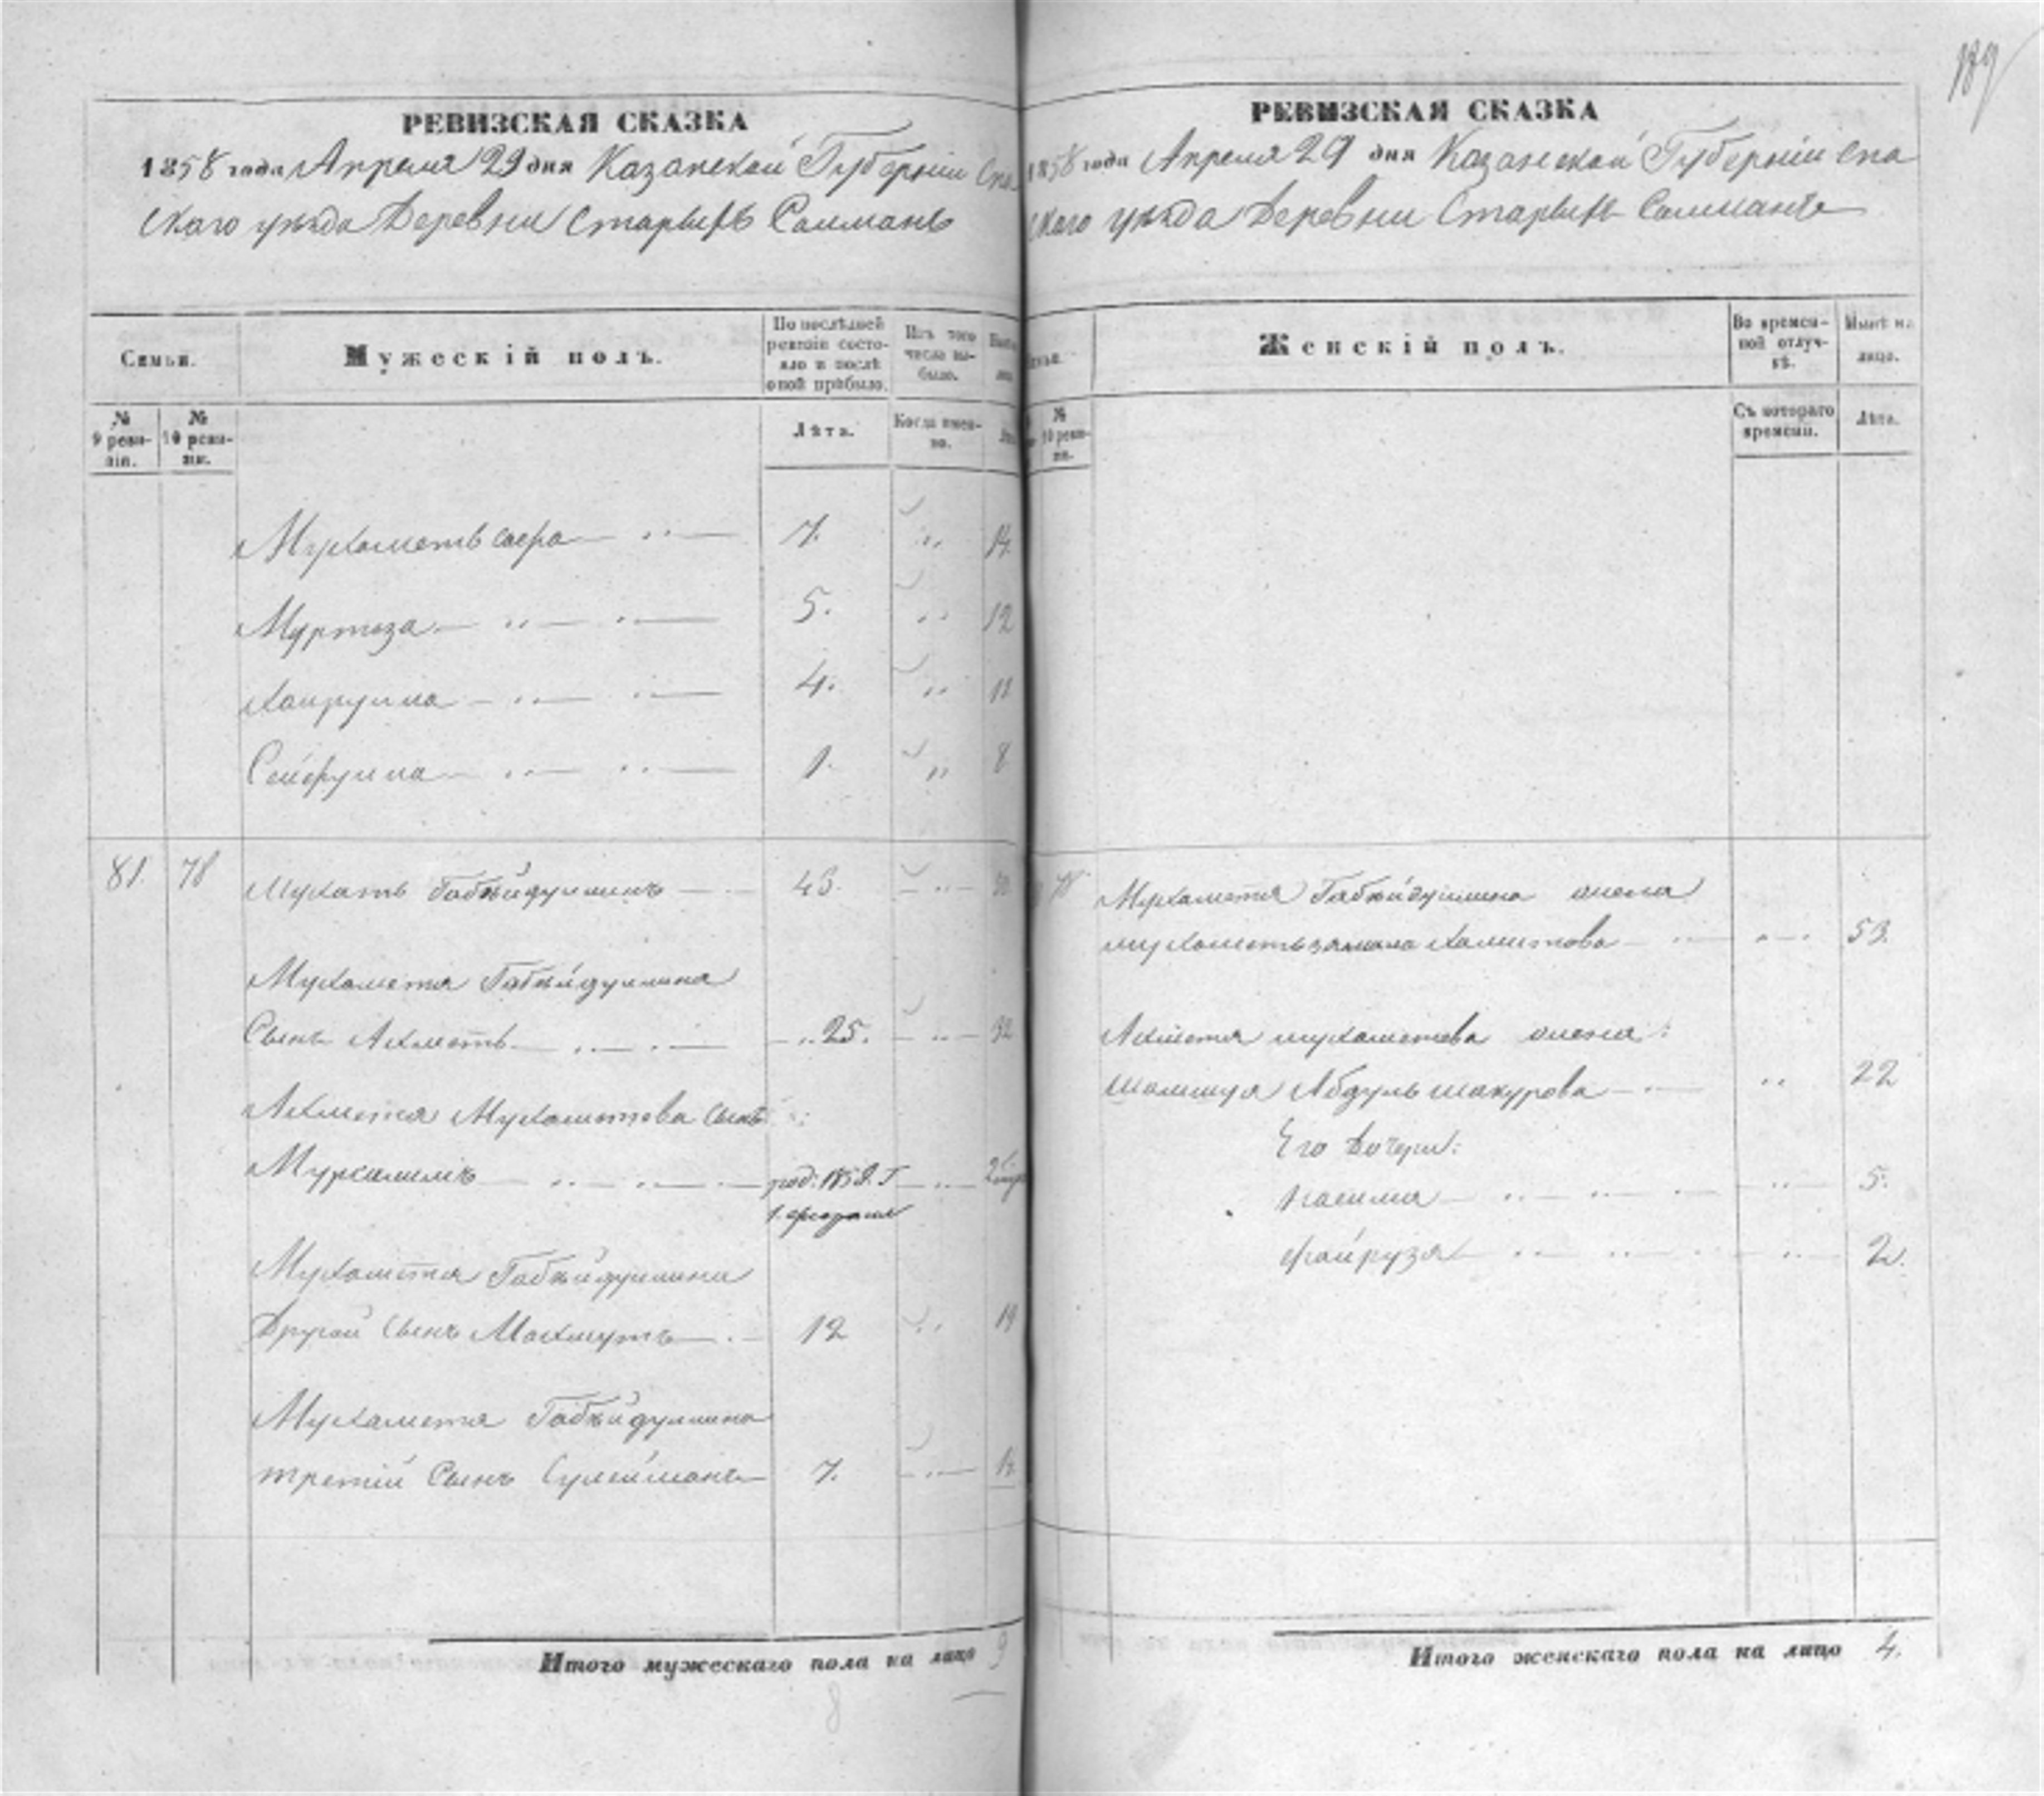 189
РЕВИЗСКАЯ СКАЗКА
1858 года Апреля 29 дня Казанской Губерніи Спа
скаго уѣзда Деревни Старыхъ Салманъ
Семьи.
Мужескій полъ.
По послѣдней ревизіи состояло и послѣ оной прибыло.
Изъ того числа выбыло.
№ 9 ревизіи.
№ 10 ревизіи.
Лѣта.
Когда именно.
Мухаметъ сафа 7. 14.
Муртаза 5. 12
Хайрулла 4. 11
Сейфулла 1. 8
81. 78 Мухаметъ Габѣйдуллинъ 43.
Мухаметя Габѣйдуллина
Сынъ Ахметъ 25. 32
Ахметя Мухаметова сынъ:
Мурсалимъ род. 1858. Г
1. февраля
Мухаметя Габѣйдуллина
Другой сынъ Махмутъ 12 19
Мухаметя Габѣйдуллина
третій Сынъ Сулейманъ 7. 14.
Итого мужескаго пола на лицо 9
8
РЕВИЗСКАЯ СКАЗКА
1858 года Апреля 29 дня Казанской Губерніи Спа
скаго уѣзда Деревни Старыхъ Салманъ
Женскій полъ.
Во временной отлучкѣ.
Нынѣ на лицо.
№ 10 ревизіи.
Съ котораго времени.
Лѣта.
78 Мухаметя Габѣйдуллина жена
Мухаметьзамала Хамитова 53.
Ахметя Мухаметова жена:
Абдульшакурова 22
Его дочери:
5.
Файрузя 2.
Итого женскаго пола на лицо 4.